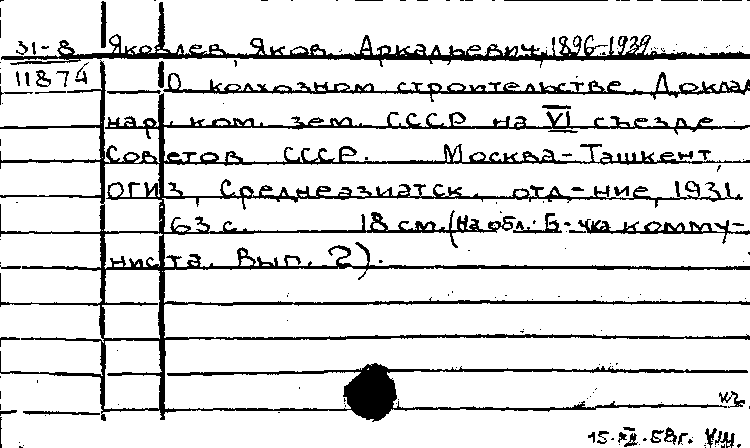 31-8 Яковлев, Яков Аркадьевич, 1896-1939
11874 О колхозном строительстве. Доклад
нар. ком. зем. СССР на VI съезде
Советов СССР. Москва-Ташкент,
ОГИЗ, Среднеазиатск. отд-ние, 1931.
63 с. 18 см. (На обл.: Б-чка комму-
ниста. Вып. 2).
15.XII.58г.